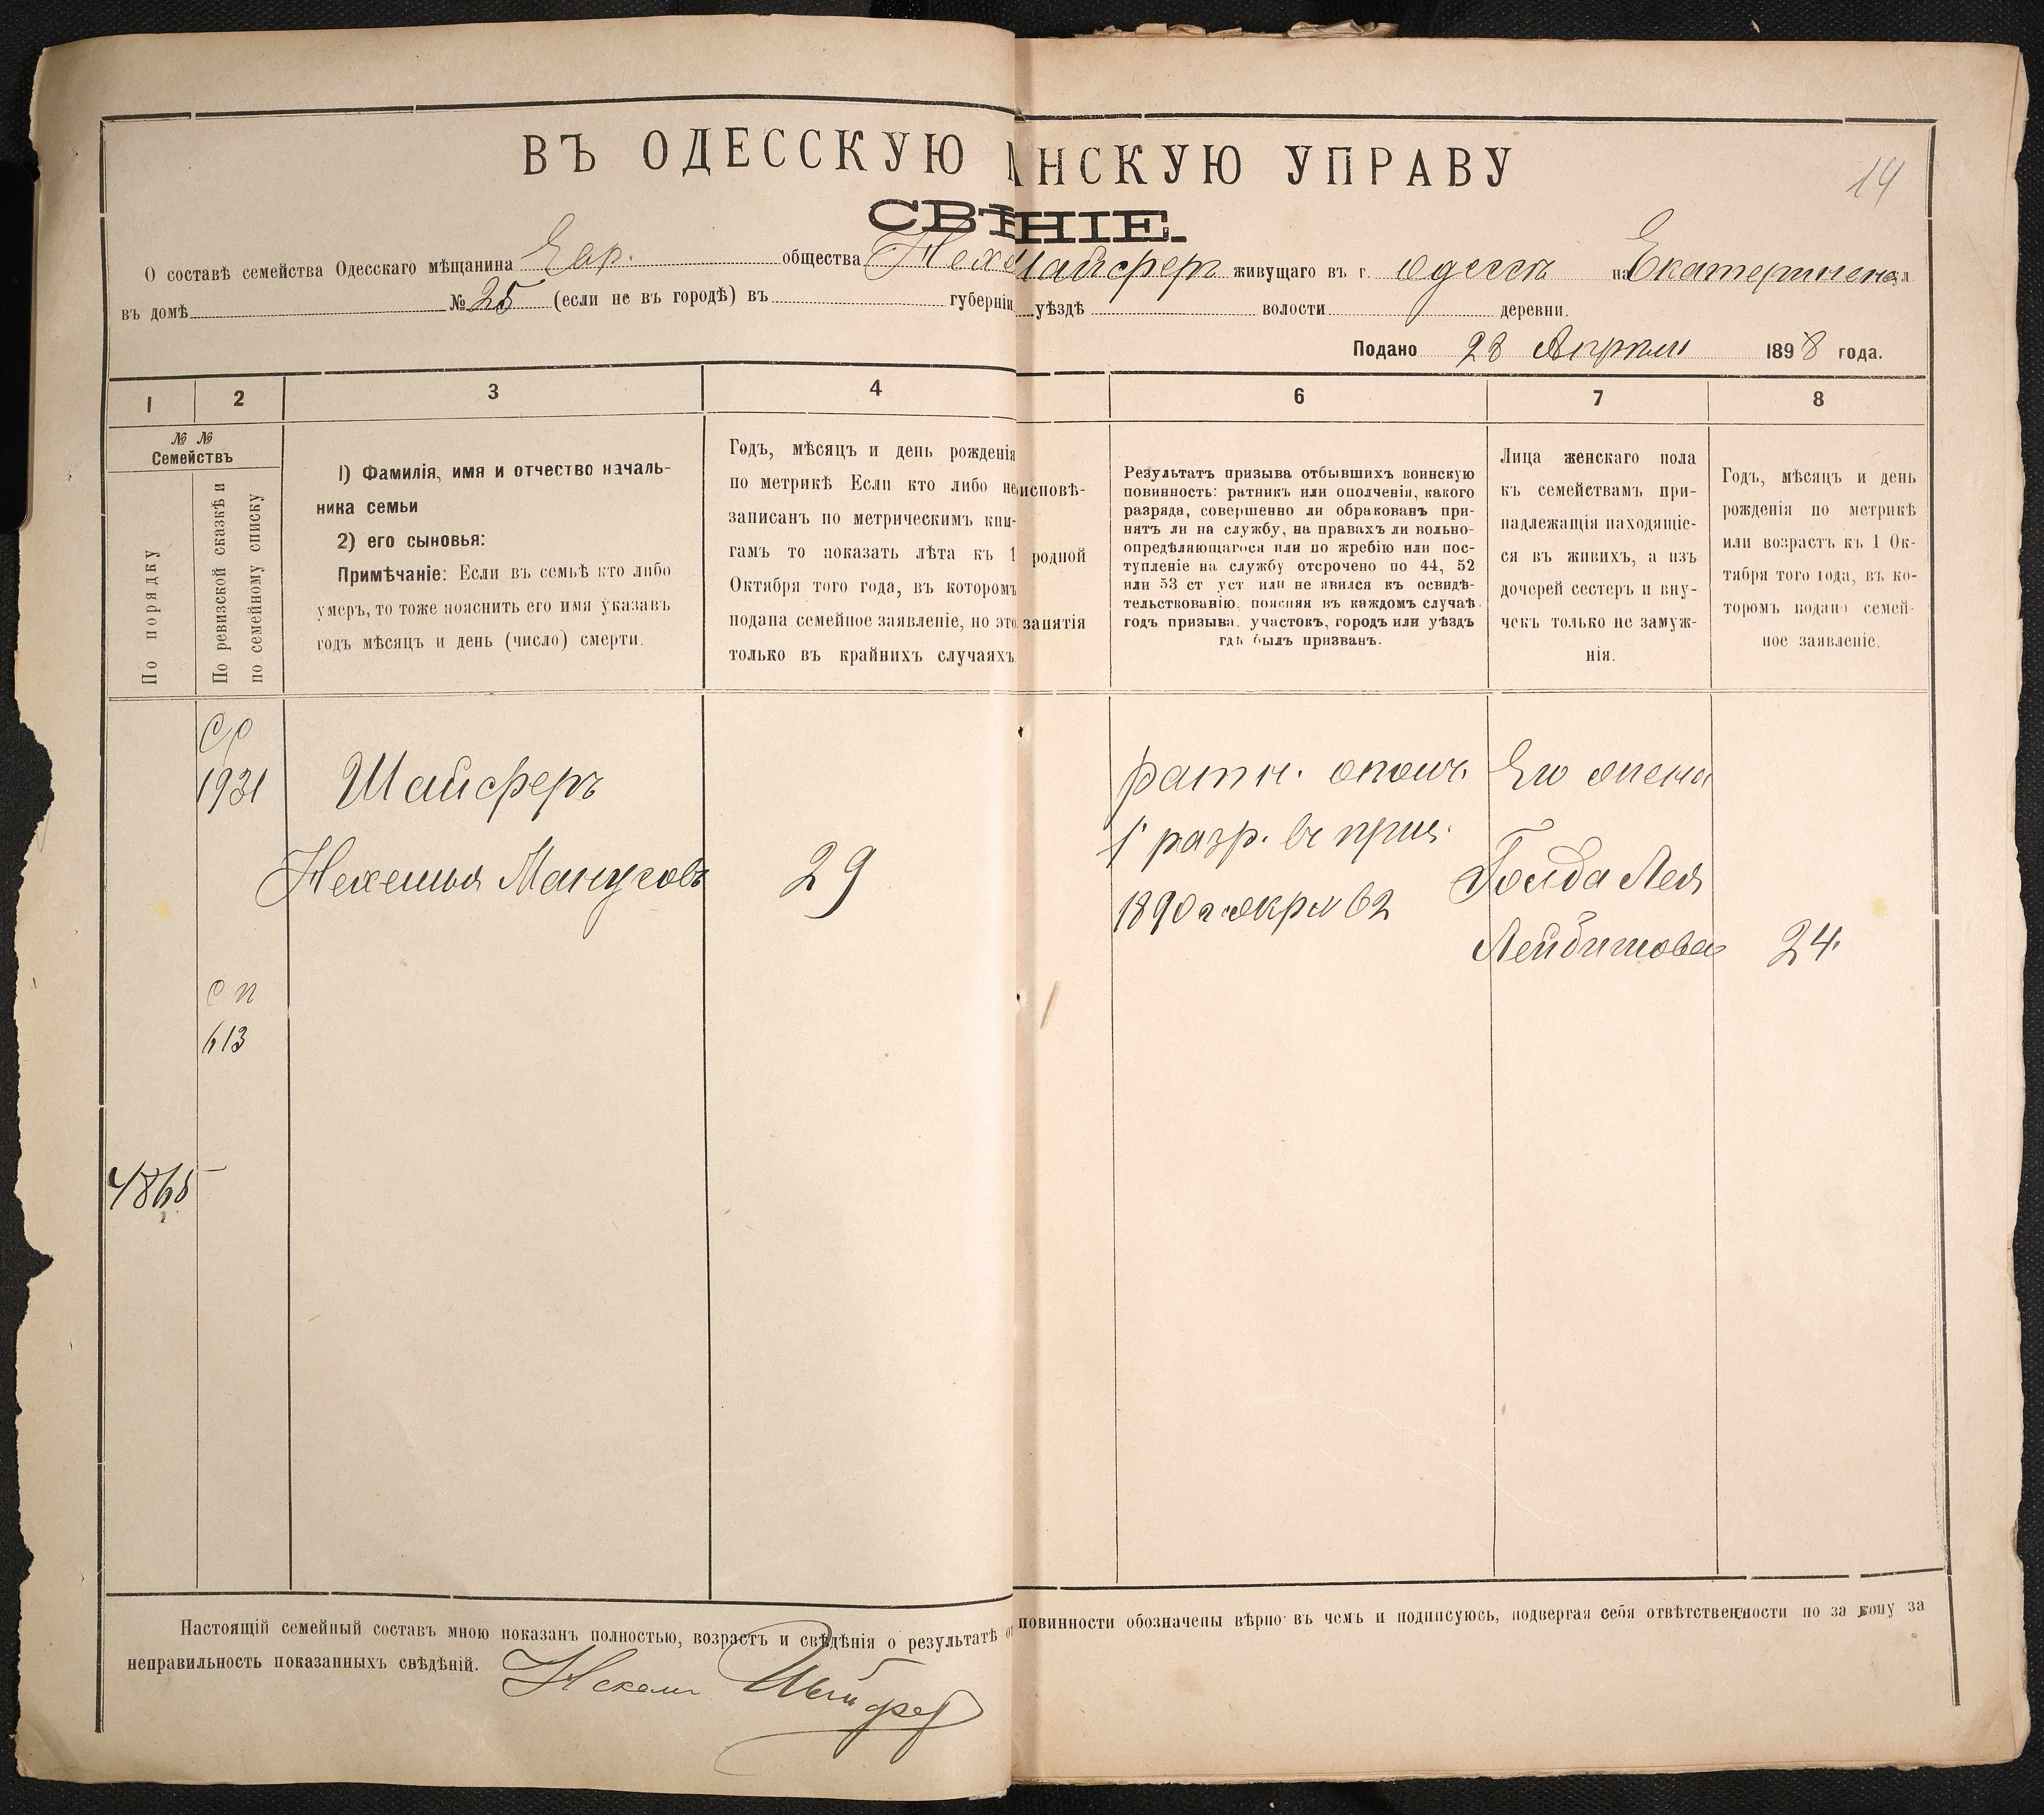 ВЪ ОДЕССКУЮ НСКУЮ УПРАВУ
14
СВѢНІЕ.
О составѣ семейства Одесскаго мѣщанина Евр. общества Нех Шайсферъ живущаго въ г. Одессѣ на ул
въ домѣ № 25 (если не въ городѣ) въ губерніи уѣздѣ волости деревни.
Подано 28 Апрѣля 1898 года.
1 2 3 4 6 7 8
№ № Семействъ
По порядку
По ревизской сказкѣ и
по семейному списку
1) Фамилія, имя и отчество началь-
ника семьи
2) его сыновья:
Примѣчаніе: Если въ семьѣ кто либо
умеръ, то тоже пояснить его имя указавъ
годъ мѣсяцъ и день (число) смерти.
Годъ, мѣсяцъ и день рожденія
по метрикѣ Если кто либо не
записанъ по метрическимъ кни-
гамъ то показать лѣта къ 1
Октября того года, въ которомъ
подана семейное заявленіе, но это
только въ крайнихъ случаяхъ
исповѣ-
родной
занятія
Результатъ призыва отбывшихъ воинскую
повинность: ратникъ или ополченія, какого
разряда, совершенно ли обракованъ при-
нятъ ли на службу, на правахъ ли вольно-
опредѣляющагося или по жребію или пос-
тупленіе на службу отсрочено по 44, 52
или 53 ст уст или не явился къ освидѣ-
тельствованію, поясняя въ каждомъ случаѣ
годъ призыва, участокъ, городъ или уѣздъ
гдѣ былъ призванъ.
Лица женскаго пола
къ семействамъ при-
надлежащія находящіе-
ся въ живихъ, а изъ
дочерей сестеръ и вну-
чекъ только не замуж-
нія.
Годъ, мѣсяцъ и день
рожденія по метрикѣ
или возрастъ къ 1 Ок-
тября того года, въ ко-
торомъ подано семей-
ное заявленіе.
1931
Шайсферъ
Нехемья Манусовъ
29
ратн. ополч.
1 разр. въ приз.
1890 г
Его жена
Голда Лея
Лейбишова
24.
с п
613
4865
Настоящій семейный составъ мною показанъ полностью, возрастъ и свѣдѣнія о результатѣ повинности обозначены вѣрно въ чемъ и подписуюсь, подвергая себя отвѣтственности по за кону за
неправильность показанныхъ свѣдѣній.